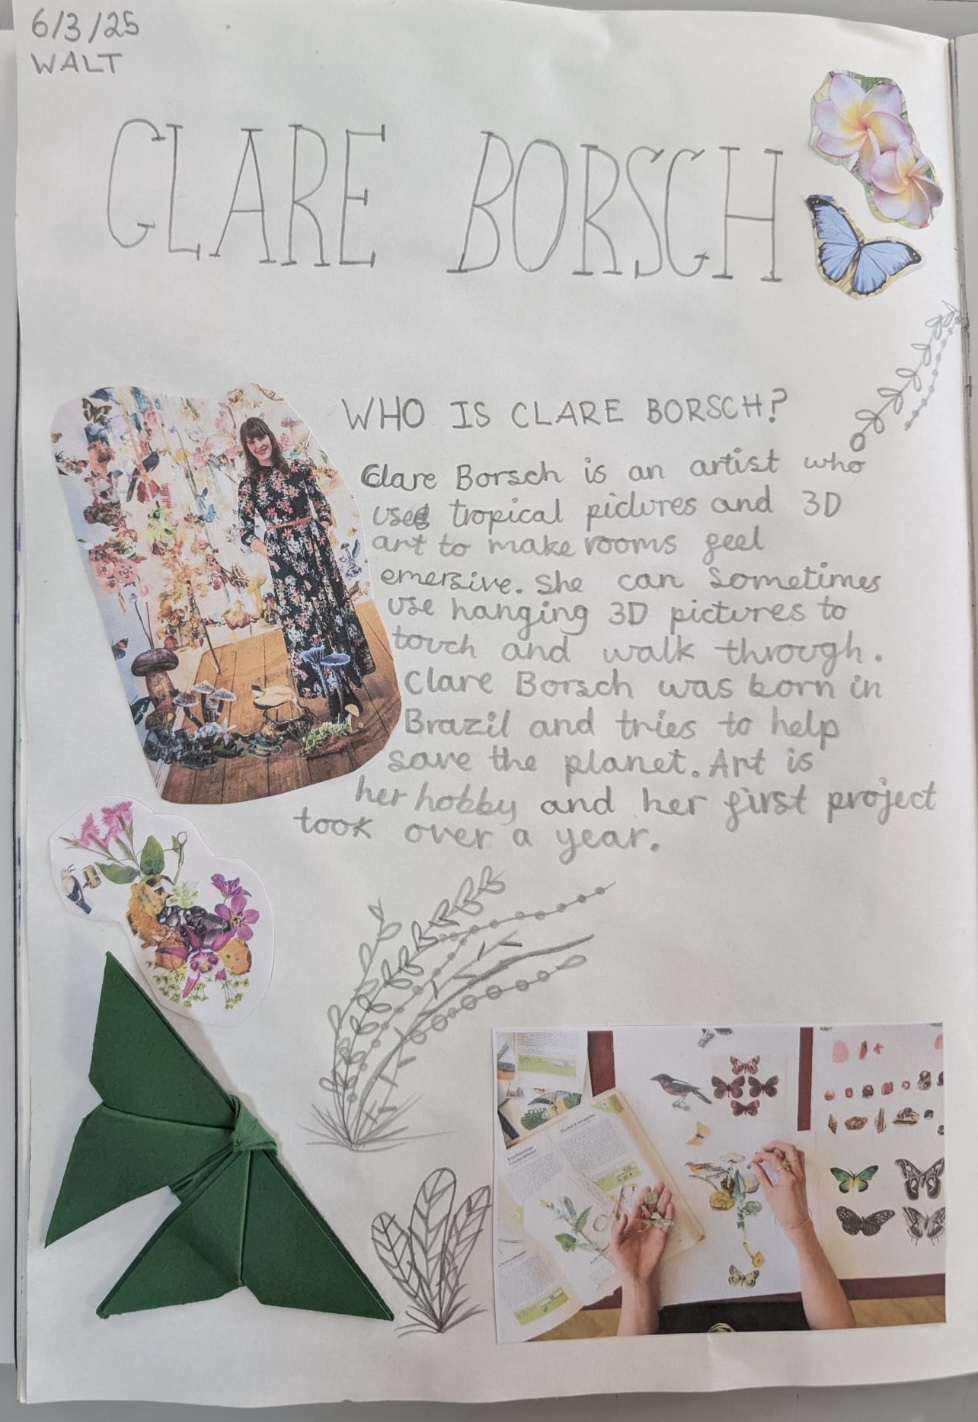 6/3/25
WALT
CLARE BORSCH
WHO IS CLARE BORSCH?
Clare Borsch is an artist who
uses tropical pictures and 3D
art to make rooms feel
emersive. She can sometimes
use hanging 3D pictures to
touch and walk through.
Clare Borsch was born in
Brazil and tries to help
save the planet. Art is
her hobby and her first project
took over a year.